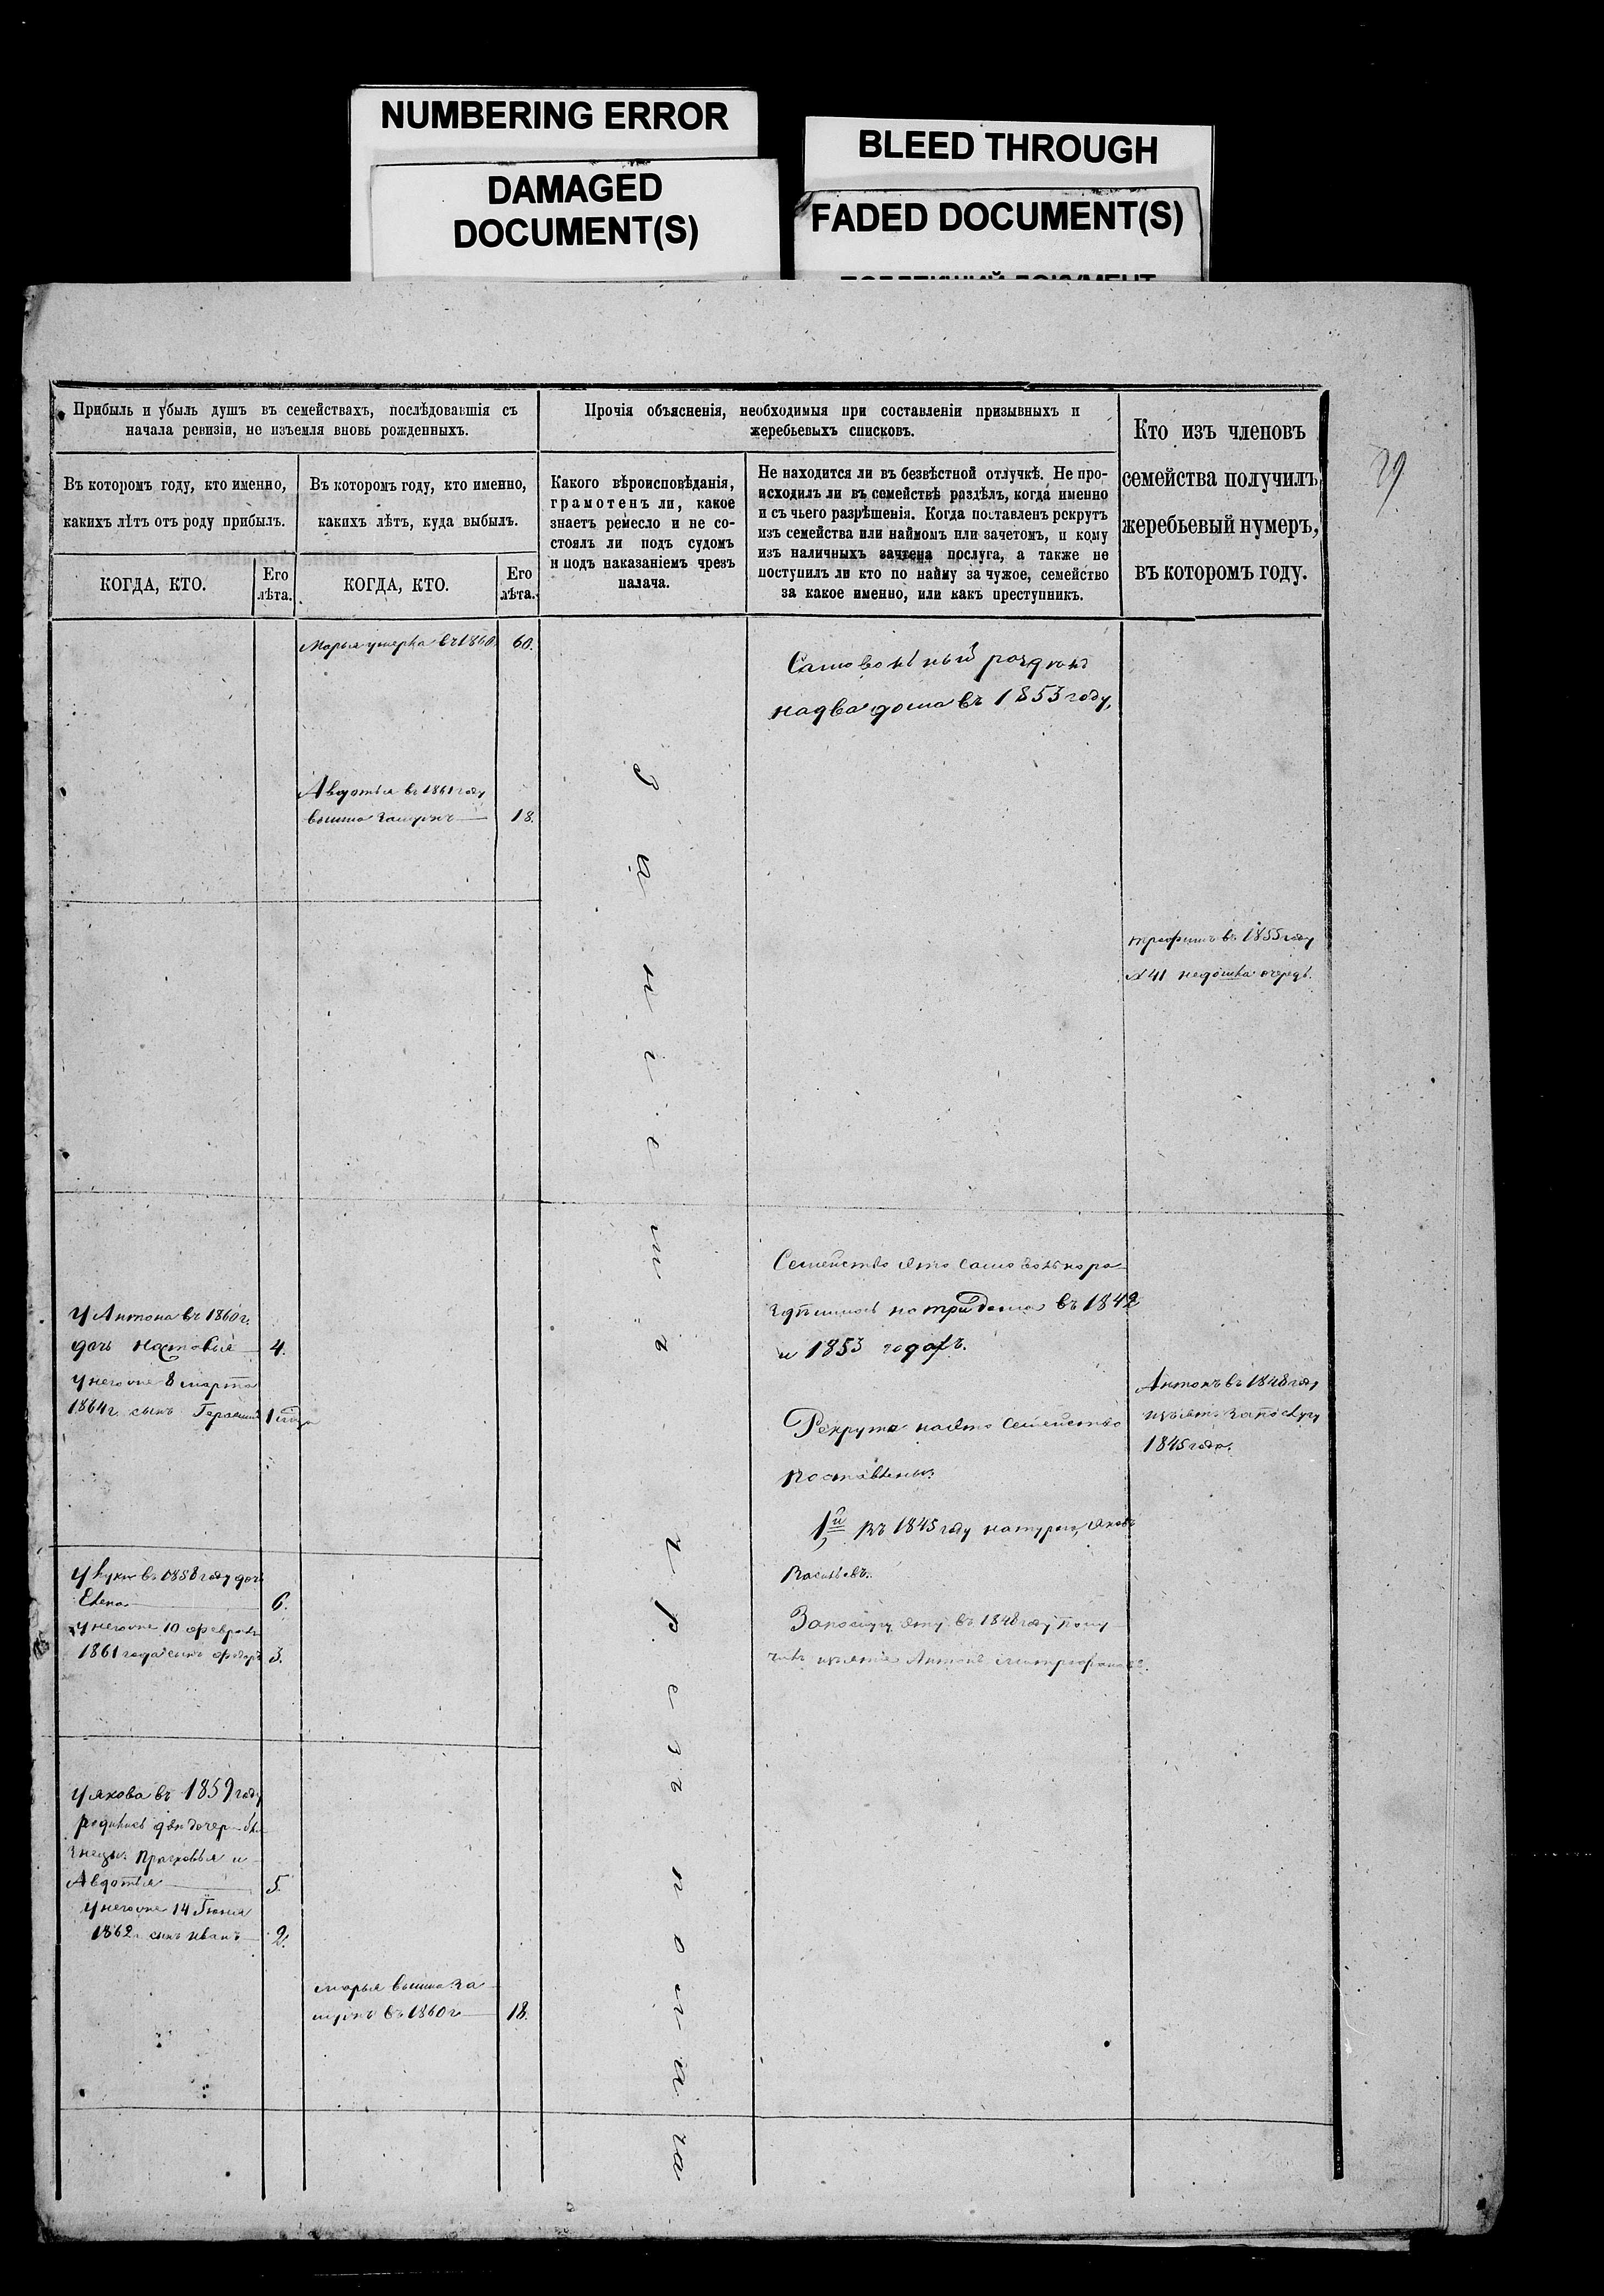 NUMBERING ERROR
DAMAGED
DOCUMENT(S)
BLEED THROUGH
FADED DOCUMENT(S)
79
Прибыль и убыль душъ въ семействахъ, послѣдовавшія съ
начала ревизіи, не изъемля вновь рожденныхъ.
Въ которомъ году, кто именно,
какихъ лѣтъ отъ роду прибылъ.
КОГДА, КТО.
Его
лѣта.
Въ которомъ году, кто именно,
какихъ лѣтъ, куда выбылъ.
КОГДА, КТО.
Его
лѣта.
Прочія объясненія, необходимыя при составленіи призывныхъ и
жеребьевыхъ списковъ.
Какого вѣроисповѣданія,
грамотенъ ли, какое
знаетъ ремесло и не со-
стоялъ ли подъ судомъ
и подъ наказаніемъ чрезъ
палача.
Не находится ли въ безвѣстной отлучкѣ. Не про-
исходилъ ли въ семействѣ раздѣлъ, когда именно
и съ чьего разрѣшенія. Когда поставленъ рекрутъ
изъ семейства или наймомъ или зачетомъ, и кому
изъ наличныхъ зачтена послуга, а также не
поступилъ ли кто по найму за чужое, семейство
за какое именно, или какъ преступникъ.
Кто изъ членовъ
семейства получилъ
жеребьевый нумеръ,
въ которомъ году.
Марья умерла въ 1860 60.
Авдотья въ 1861 году
вышла замужъ 18.
Самовольный раздѣлъ
на два дома въ 1853 году,
трофимъ въ 1855 году
№ 41 недошла очередь.
у Антона въ 1860 г.
дочь Настасья 4.
у него же 8 марта
1864 г. сынъ Герасимъ 1
у Луки въ 1858 году дочь
Елена 6.
у него же 10 февраля
1861 года сынъ Федоръ 3.
у якова въ 1859 году
родились двѣ дочери бли
знецы: Прасковья и
Авдотья 5.
у него же 14 Іюня
1862 г. сынъ иванъ 2.
марья вышла за
мужъ въ 1860 г 18.
Семейство это самовольно ра
здѣлилось на три дома въ 1842
и 1853 годахъ.
Рекрута на это семейство
поставлены:
1й въ 1845 году натурою, яковъ
Васильевъ.
За послугу эту въ 1848 году полу
чилъ изъятіе Антонъ митрофановъ.
Антонъ въ 1848 году
изъятъ за послугу
1845 года.